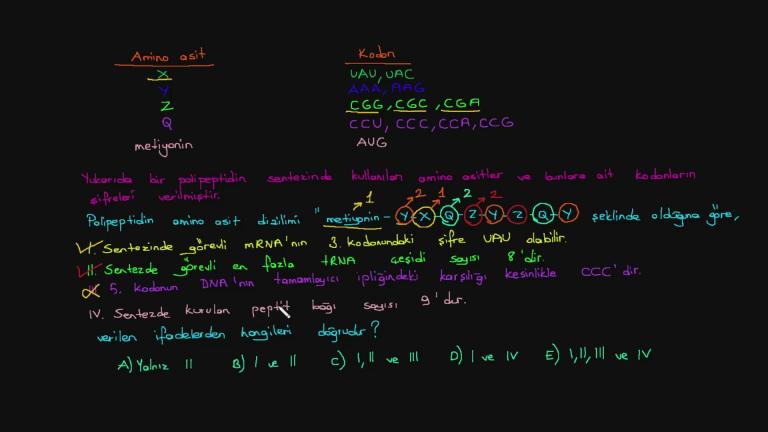 Amino asit Kodon
X UAU, UAC
Y AAA, AAG
Z CGG, CGC, CGA
Q CCU, CCC, CCA, CCG
metiyonin AUG
Yukarıda bir polipeptidin sentezinde kullanılan amino asitler ve bunlara ait kodonların
şifreleri verilmiştir.
1 2 1 2 2
Polipeptidin amino asit dizilimi "metiyonin - Y - X - Q - Z - Y - Z - Q - Y şeklinde olduğuna göre,
I. Sentezinde görevli mRNA'nın 3. kodonundaki şifre UAU olabilir.
II. Sentezde görevli en fazla tRNA çeşidi sayısı 8'dir.
5. kodonun DNA'nın tamamlayıcı ipliğindeki karşılığı kesinlikle CCC'dir.
IV. Sentezde kurulan peptit bağı sayısı 9'dur.
verilen ifadelerden hangileri doğrudur?
A) Yalnız II B) I ve II C) I, II ve III D) I ve IV E) I, II, III ve IV